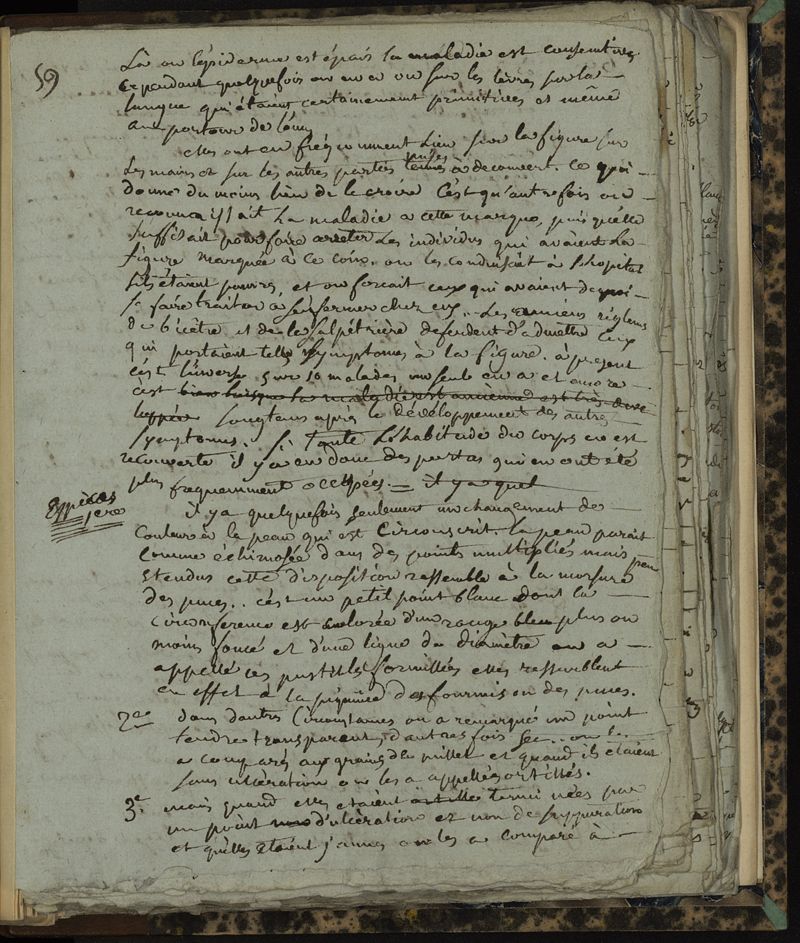 59
Là où l'épiderme est épais la maladie est consécutive
cependant quelquefois on en a vu sur les lèvres sur la
langue qui étaient certainement primitives et même
au pourtour de l'anus
elles ont eu fréquemment lieu sur la figure sur
les mains et sur les autres parties tenues à decouvert. ce qui
donne du moins lieu de le croire C'est qu'autrefois on
reconnaissait La maladie a cette marque, puisqu'elle
suffisait pour faire arreter Les individus qui avaient La
figure marquée à ce coin. on les conduisait à l'hopital
s'ils étaient pauvres, et on forcait ceux qui avaient de quoi
se faire traiter a s'enfermer chez eux. Les anciens réglems
de bicêtre et de la salpétrière defendent d'admettre ceux
qui portaient tels symptomes à la figure. à present
c'est l'inverse sur 10 malades un seul en a et encore
c'est bien lorsque la maladie est ancienne est très deve
loppée longtems après le developpement des autres
symptomes. Si Toute L'habitude du corps en est
recouverte il y a eu donc des partas qui en ont été
plus frequemment occupées. = il y a quel
Espèces
1ere
il y a quelquefois seulement un changement de
Couleur à la peau qui est Circonscrit. la peau parait
comme échimosée dans des points multipliés mais peu
etendus cette disposition ressemble à la morsure
des puces.. c'est un petit point blanc dont la
circonference est colorée d'un rouge bleu plus ou
moins foncé et d'une ligne de diamètre on a
appellé ces pustules formillées elles ressemblent
en effet à la piquure des fourmis ou des puces.
2e dans d'autres Circonstances on a remarqué un point
tendre transparent, d'autres fois sec.. on l.
a comparés aux grains de millet et quand ils étaient
sans ulcération on les a appellés ortillés.
3e. mais quand elles etaient terminées par
un point d'ulcération et non de suppuration
et qu'elles étaient jaunes on les a comparé à